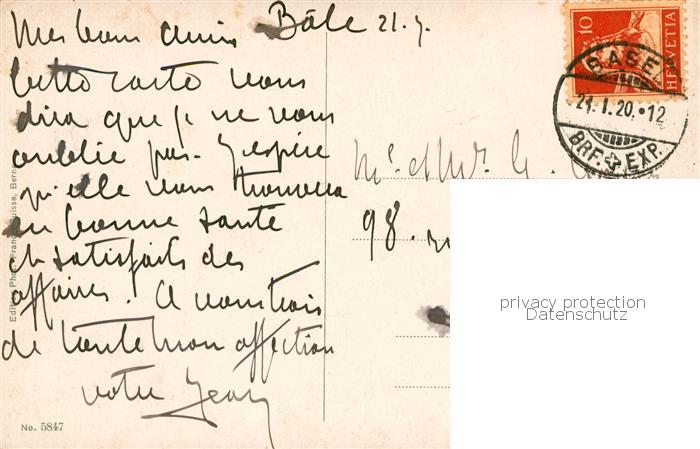 Mes bons amis Bâle 21.1.
Cette carte vous
dira que je ne vous
oublie pas. J'espère
qu'elle vous trouvera
en bonne santé
et satisfaits des
affaires. A vous trois
de toute mon affection
votre Jean
No. 5847
Edition Photo Franco-Suisse, Berne
10
HELVETIA
BASEL
21.I.20.•12
BRF. EXP.
Mr. et Mdr. G.
98.
privacy protection
Datenschutz